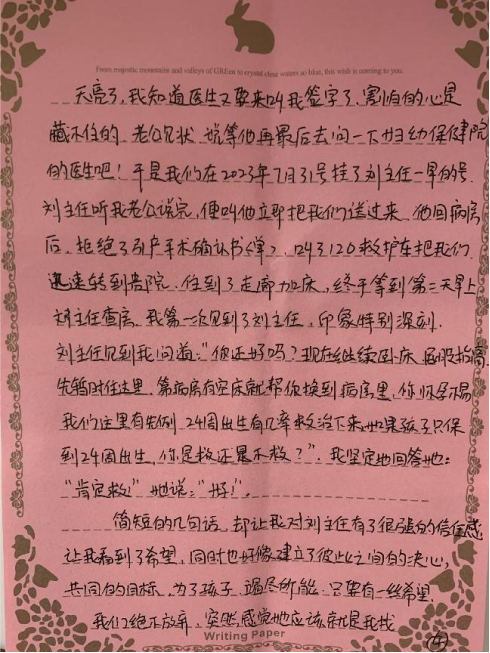 From majestic mountains and valleys of GREen to crystal clear waters so blue, this wish is coming to you.
天亮了,我知道医生又要来叫我签字了,害怕的心是
藏不住的,老公见状,说等他再最后去问一下妇幼保健院
的医生吧!于是我们在2023年7月31号挂了刘主任一早的号.
刘主任听我老公说完,便叫他立即把我们送过来,他回病房
后,拒绝了引产手术确认书(单),叫了120救护车把我们
迅速转到贵院,住到了走廊加床,终于等到第二天早上
刘主任查房,我第一次见到了刘主任,印象特别深刻.
刘主任见到我问道:"你还好吗?现在继续卧床,屁股抬高,
先暂时住这里,等病房有空床就帮你换到病房里,你怀孕不易
我们这里有先例,24周出生有几率救治下来,如果孩子只保
到24周出生,你是救还是不救?",我坚定地回答她:
"肯定救!"她说:"好!".
简短的几句话,却让我对刘主任有了很强的信任感
让我看到了希望,同时也好像建立了彼此之间的决心,
共同的目标,为了孩子,竭尽所能,只要有一丝希望,
我们绝不放弃,突然感觉她应该就是我找
Writing Paper
4